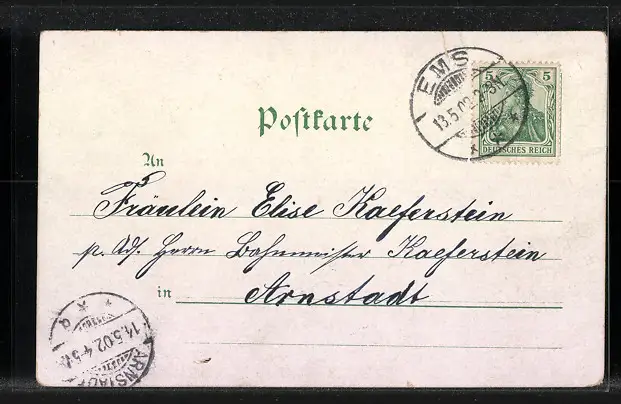 EMS
13.5.02.2-3N
5 5
DEUTSCHES REICH
Postkarte
An
Fräulein Elise Kaeferstein
p. Ad. Herrn Bahnmeister Kaeferstein
in Arnstadt
14.5.02.4-5
ARNSTADT